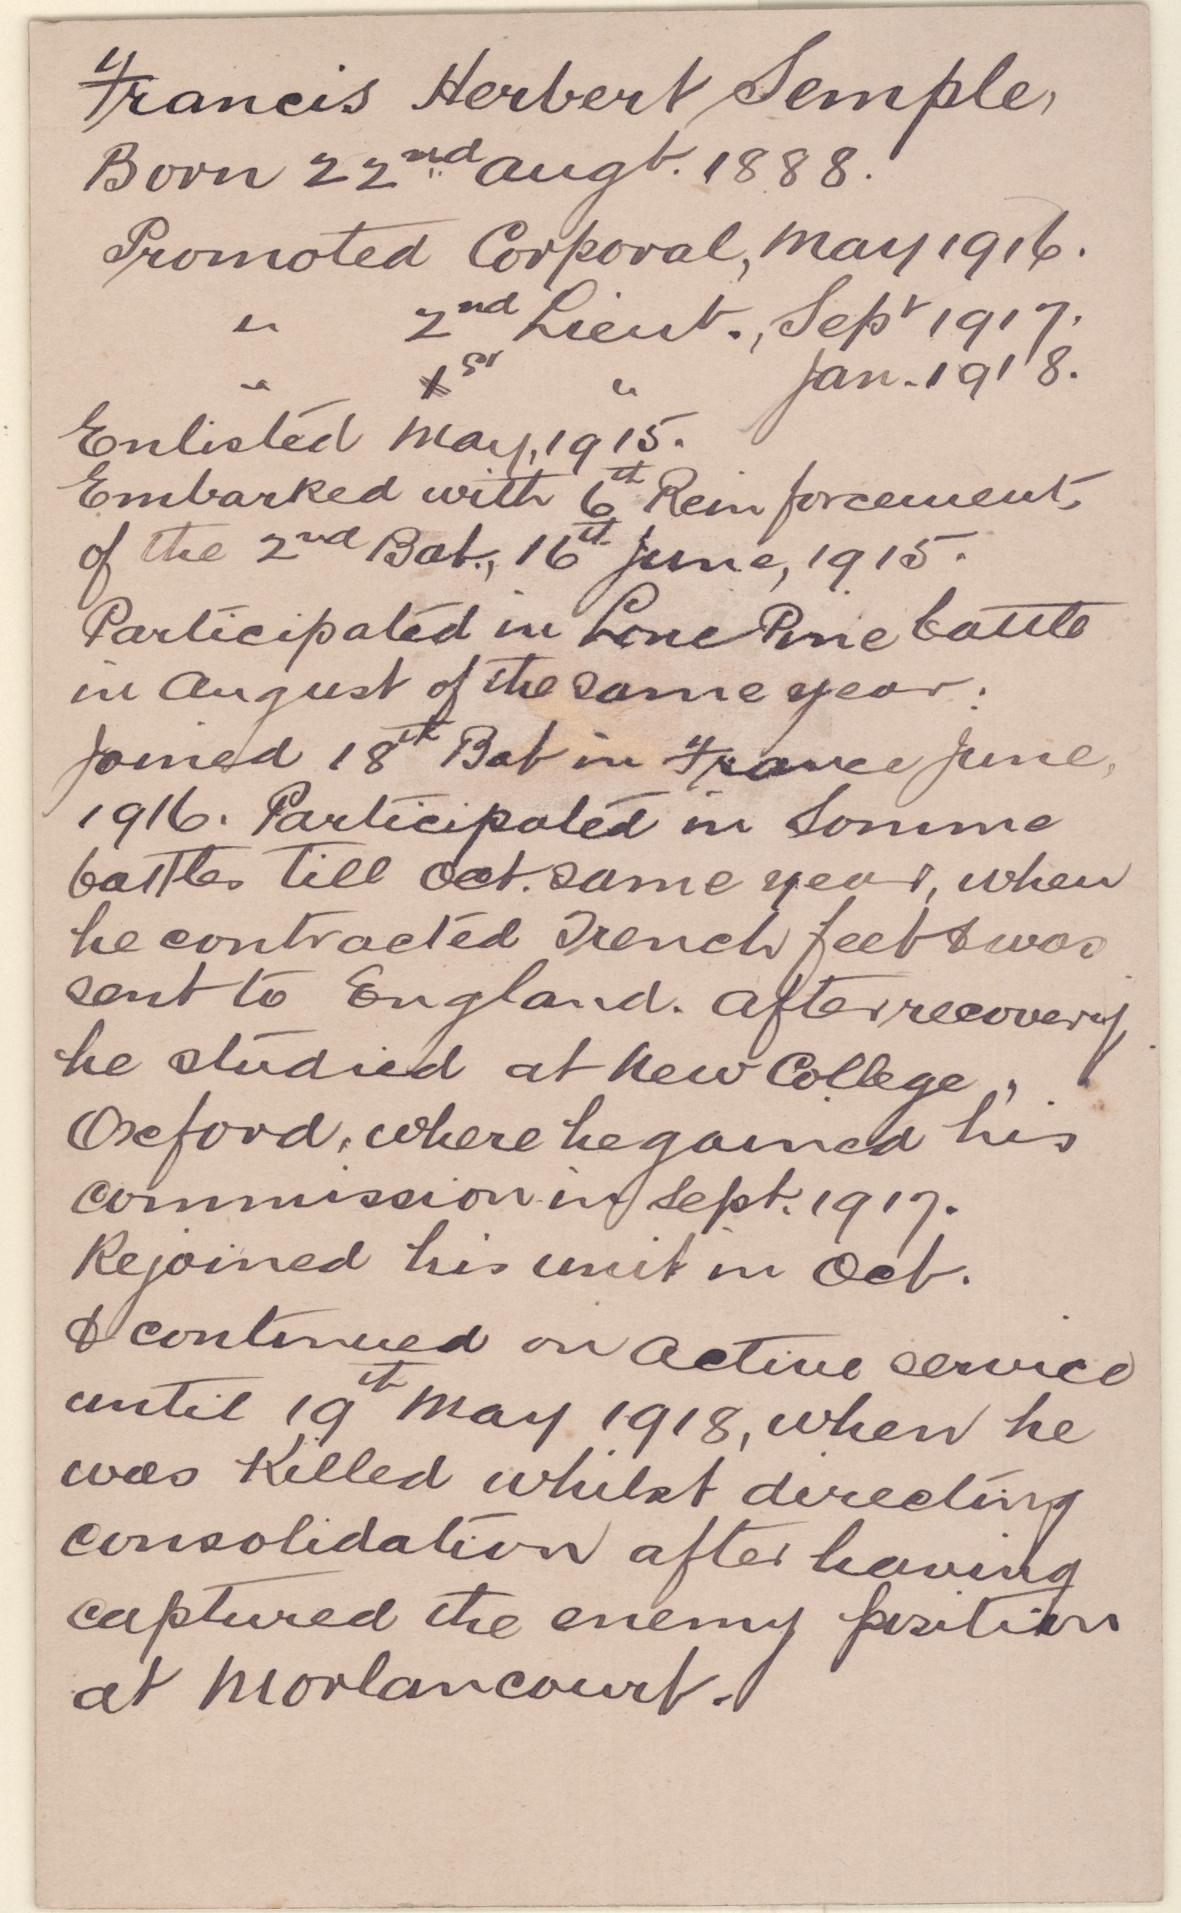 Francis Herbert Semple,
Born 22nd Augt. 1888.
Promoted Corporal, May 1916.
" 2nd Lieut., Sept 1917.
" 1st " Jan. 1918.
Enlisted May, 1915.
Embarked with 6th Reinforcements
of the 2nd Bat., 16th June, 1915.
Participated in Lone Pine battle
in August of the same year.
Joined 18th Bat in France June,
1916. Participated in Somme
battles till Oct. same year, when
he contracted Trench feet & was
sent to England. After recovery
he studied at New College,
Oxford, where he gained his
commission in Sept. 1917.
Rejoined his unit in Oct.
& continued on active service
until 19th May 1918, when he
was killed whilst directing
consolidation after having
captured the enemy position
at Morlancourt.